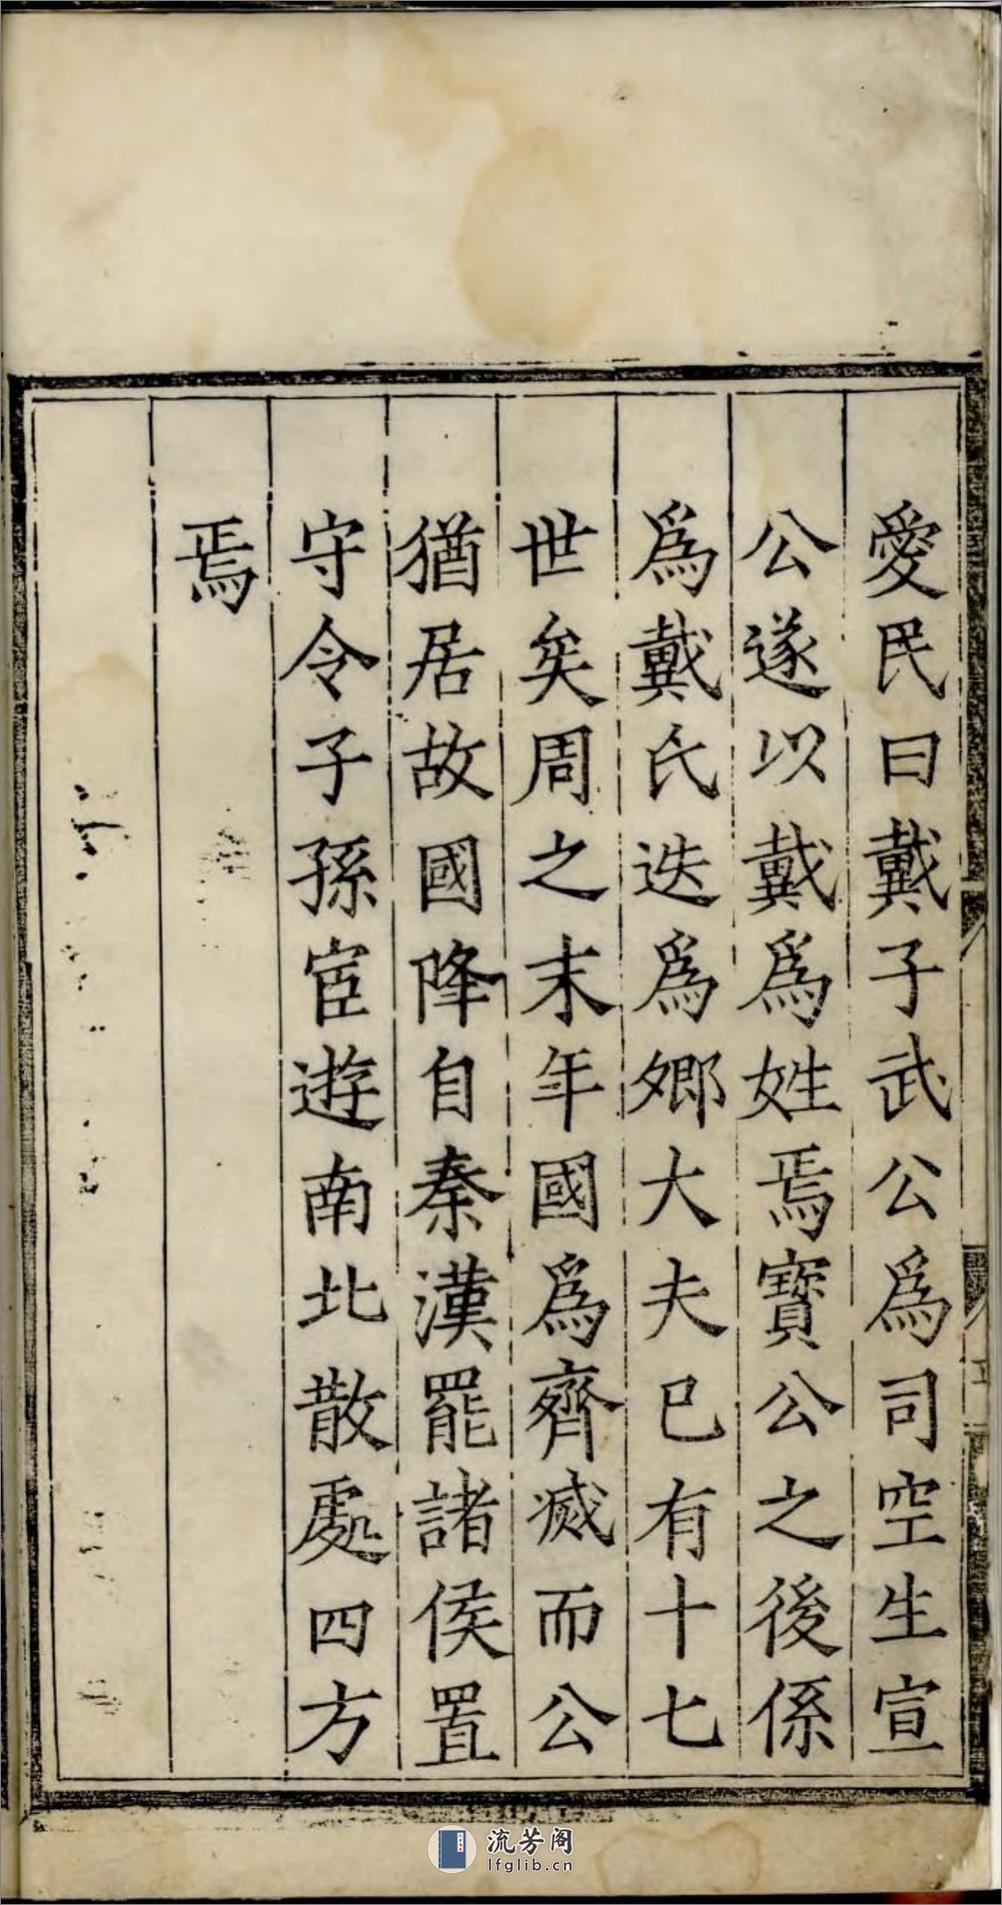 愛民曰戴子武公爲司空生宣
公遂以戴爲姓焉寳公之後係
爲戴氏迭爲鄉大夫已有十七
世矣周之末年國爲齊㓕而公
猶居故國降自秦漢罷諸侯置
守令子孫宦遊南北散處四方
焉
流芳阁
lfglib.cn